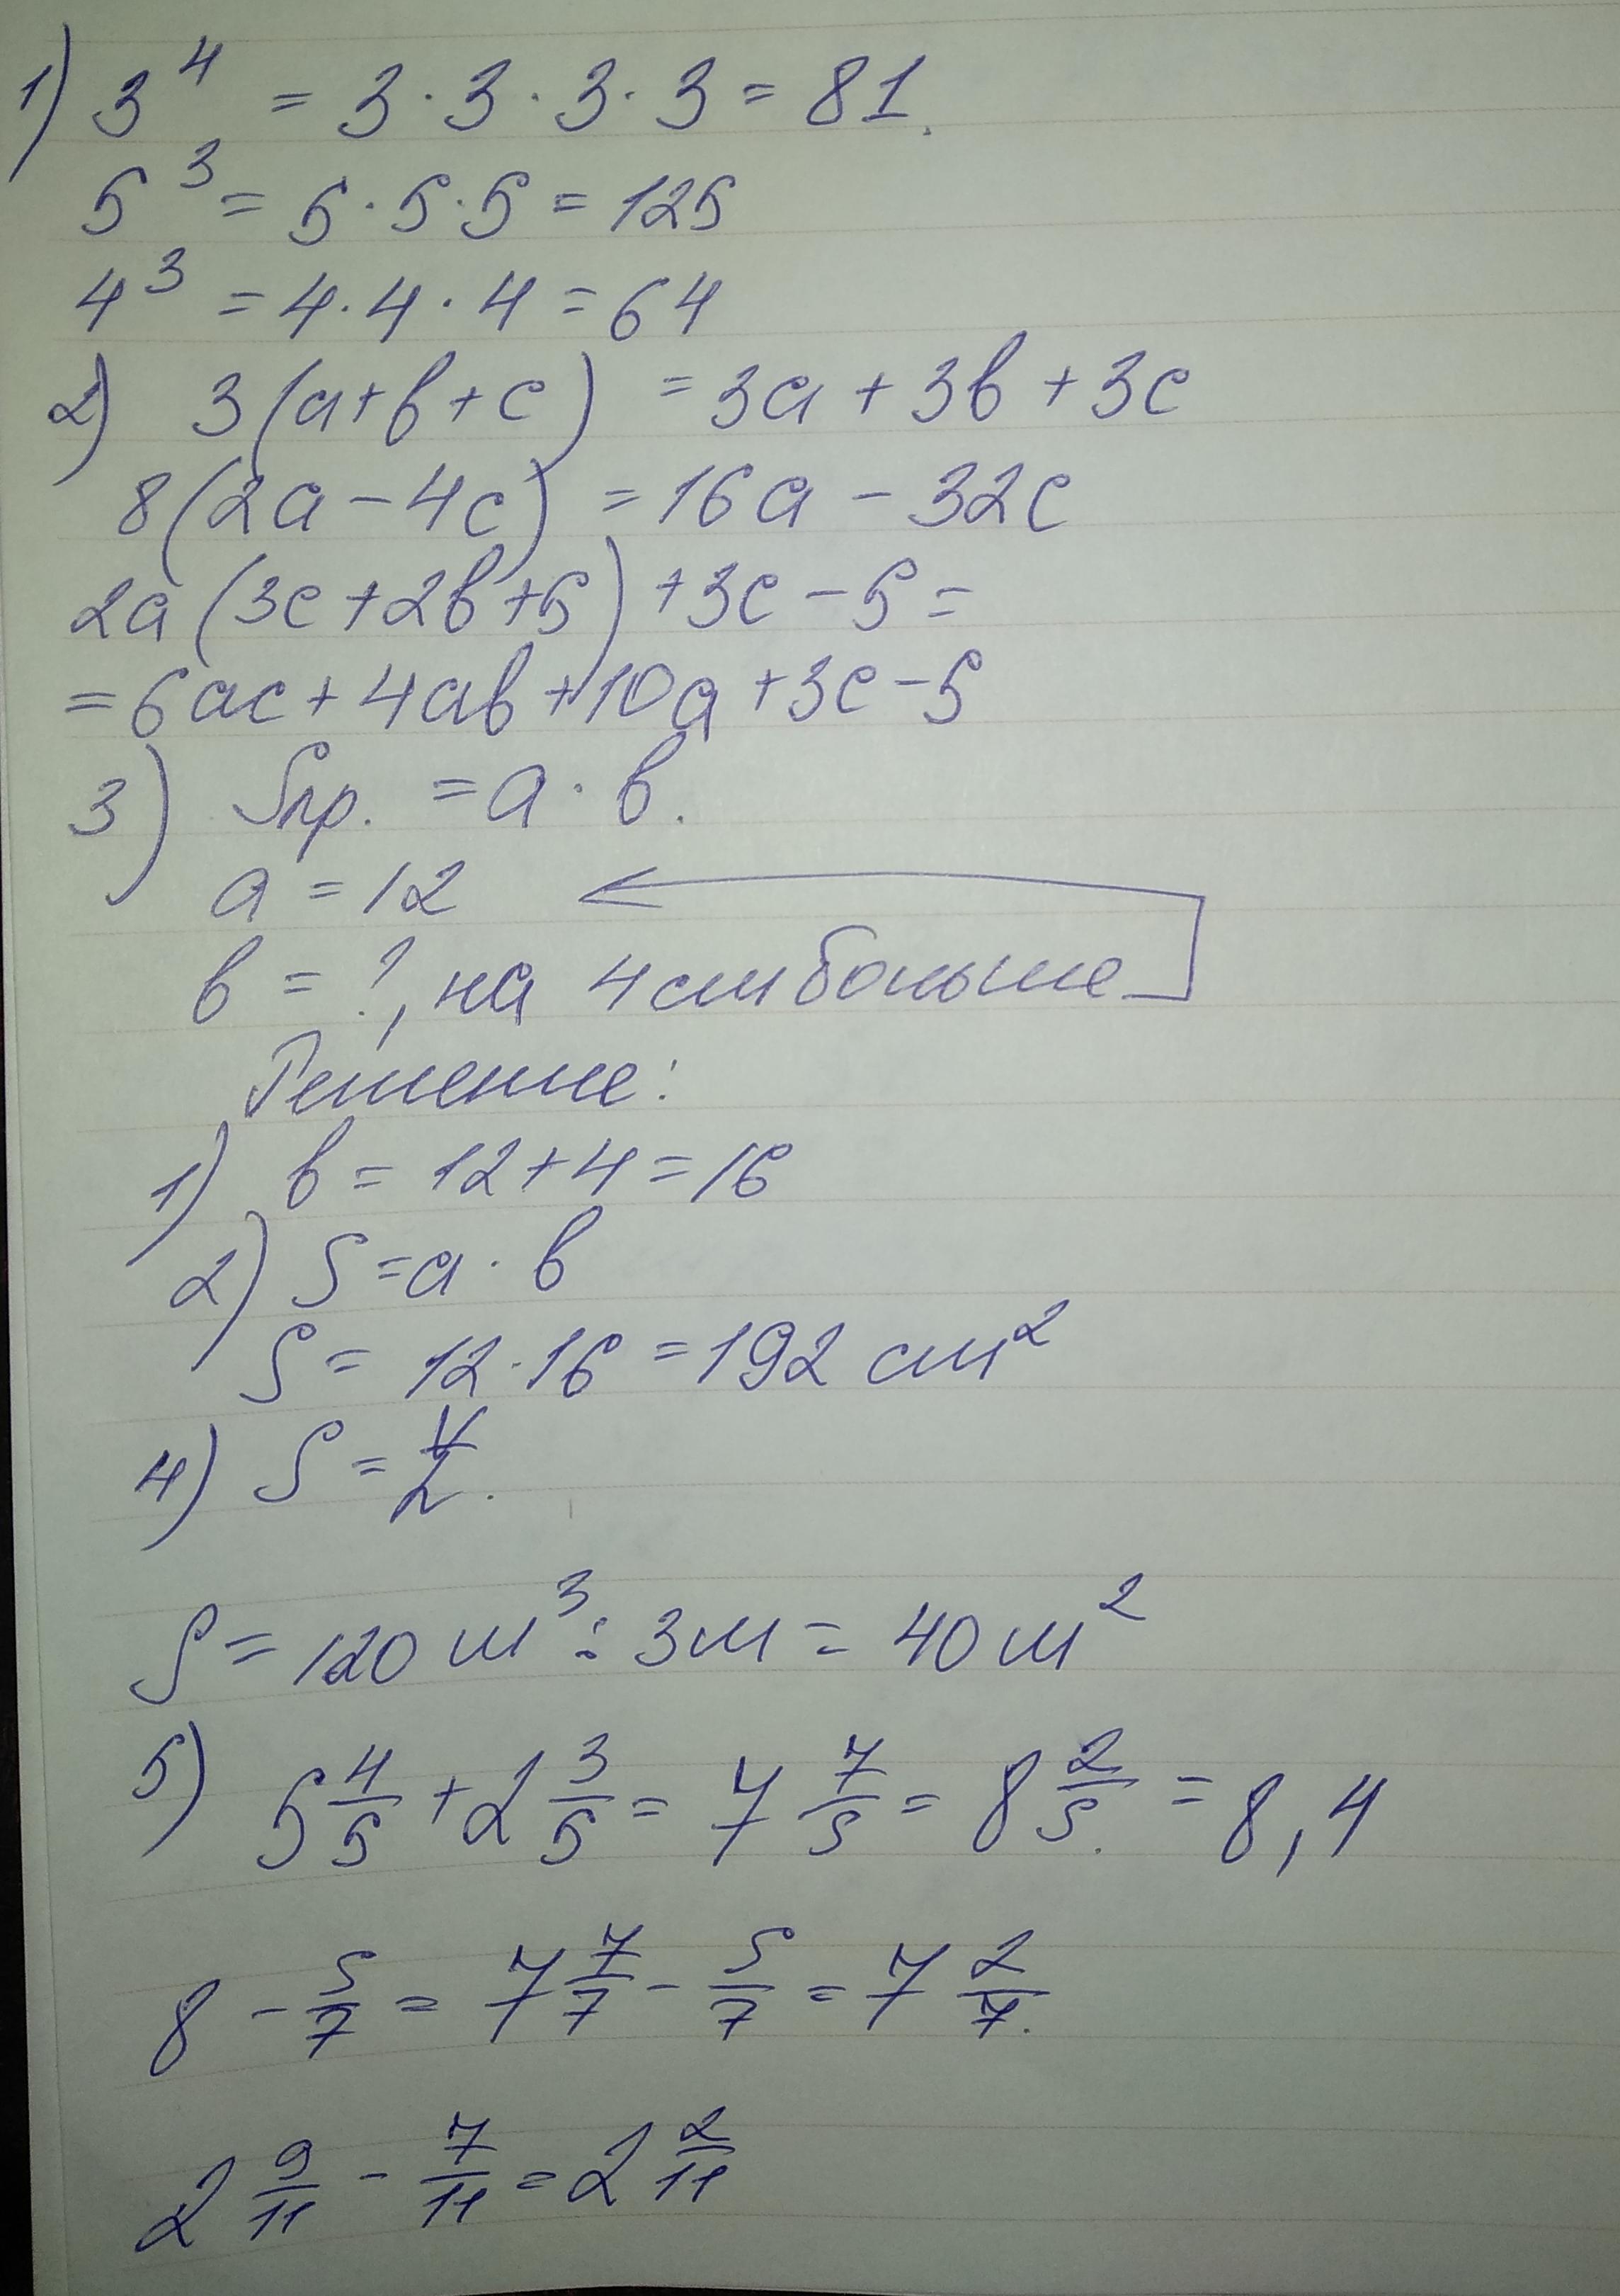 1) 3⁴ = 3 · 3 · 3 · 3 = 81.
5³ = 5 · 5 · 5 = 125
4³ = 4 · 4 · 4 = 64
2) 3(а+в+с) = 3а + 3в + 3с
8(2а - 4с) = 16а - 32с
2а(3с+2в+5) +3с - 5 =
= 6ас + 4ав + 10а + 3с - 5
3) Sпр. = а · в.
а = 12
в = ?, на 4см больше
Решение:
1) в = 12+4 = 16
2) S = а · в
S = 12 · 16 = 192 см²
4) S = V/2.
S = 120 м³ : 3м = 40 м²
5) 5 4/5 + 2 3/5 = 7 7/5 = 8 2/5. = 8,4
8 - 5/7 = 7 7/7 - 5/7 = 7 2/7.
2 9/11 - 7/11 = 2 2/11